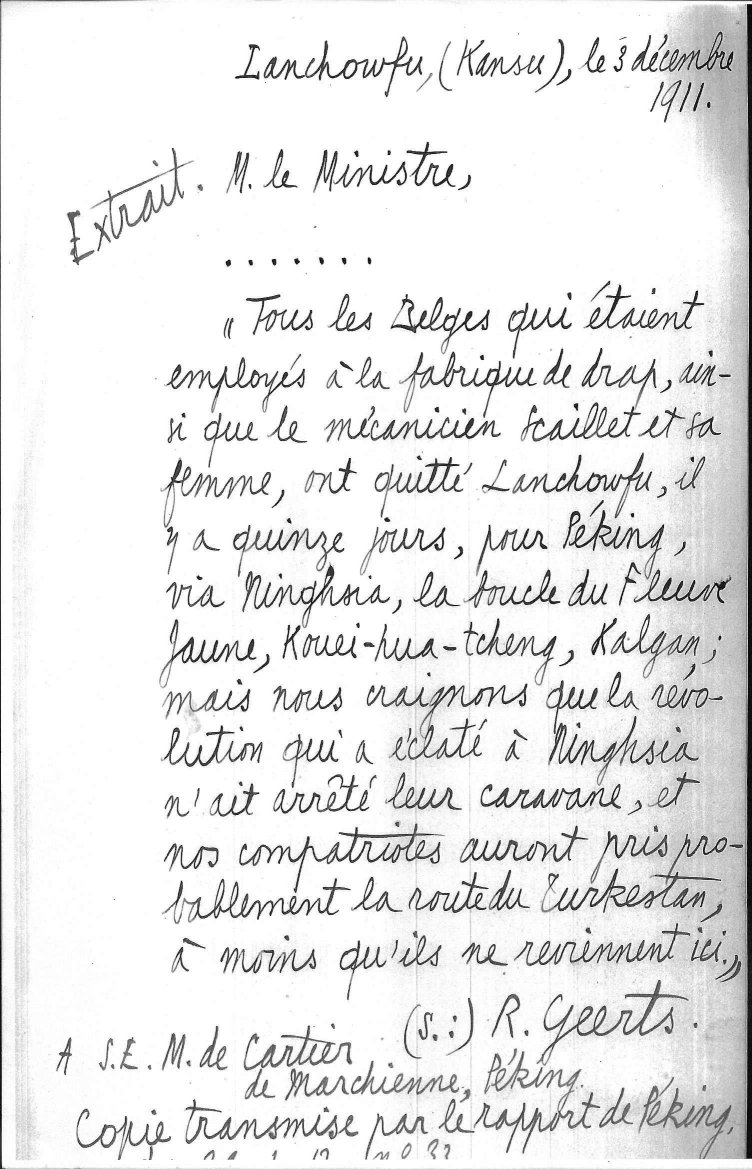 Lanchowfu, (Kansu), le 3 décembre
1911.
Extrait. M. le Ministre,
.......
„ Tous les Belges qui étaient
employés à la fabrique de drap, ain-
si que le mécanicien Scaillet et sa
femme, ont quitté Lanchowfu, il
y a quinze jours, pour Péking,
via Ninghsia, la boucle du Fleuve
Jaune, Kouei-hua-tcheng, Kalgan;
mais nous craignons que la révo-
lution qui a éclaté à Ninghsia
n'ait arrêté leur caravane, et
nos compatriotes auront pris pro-
bablement la route du Turkestan,
à moins qu'ils ne reviennent ici.„
(s.:) R. Geerts.
A S.E. M. de Cartier
de Marchienne, Péking.
Copie transmise par le rapport de Péking,